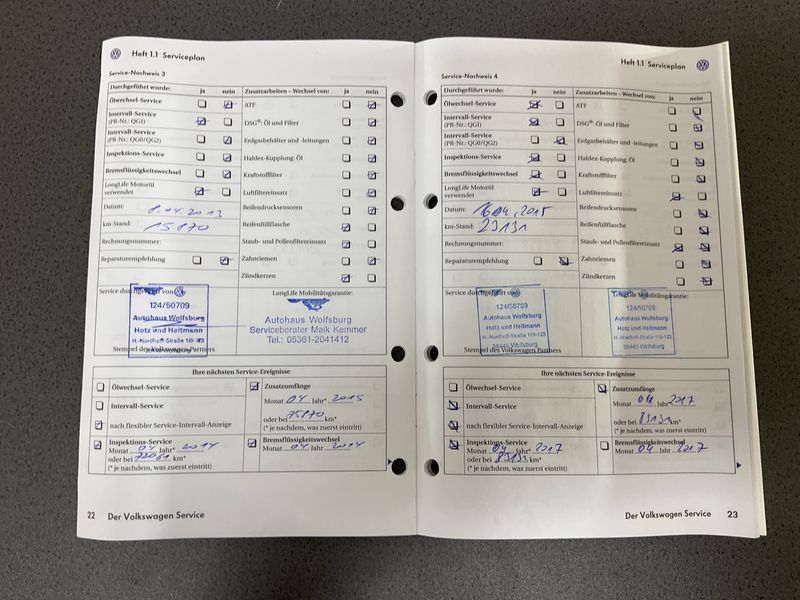 Heft 1.1 Serviceplan
Service-Nachweis 3
Durchgeführt wurde: ja nein
Ölwechsel-Service
Intervall-Service
(PR-Nr.: QG1)
Intervall-Service
(PR-Nr.: QG0/QG2)
Inspektions-Service
Bremsflüssigkeitswechsel
LongLife Motoröl
verwendet
Datum: 8.04.2013
km-Stand: 15870
Rechnungsnummer:
Reparaturempfehlung
Zusatzarbeiten – Wechsel von: ja nein
ATF
DSG®: Öl und Filter
Erdgasbehälter und -leitungen
Haldex-Kupplung: Öl
Kraftstofffilter
Luftfiltereinsatz
Reifendrucksensoren
Reifenfüllflasche
Staub- und Pollenfiltereinsatz
Zahnriemen
Zündkerzen
Service durchgeführt von:
124/50709
Autohaus Wolfsburg
Hotz und Heitmann
H.-Nordhoff-Straße 119-123
Stempel des Volkswagen Partners
LongLife Mobilitätsgarantie:
Autohaus Wolfsburg
Serviceberater Maik Kemmer
Tel.: 05361-2041412
Ihre nächsten Service-Ereignisse
Ölwechsel-Service
Intervall-Service
nach flexibler Service-Intervall-Anzeige
Inspektions-Service
Monat 04 Jahr* 2014
oder bei km*
(* je nachdem, was zuerst eintritt)
Zusatzumfänge
Monat 04 Jahr* 2015
oder bei 75870 km*
(* je nachdem, was zuerst eintritt)
Bremsflüssigkeitswechsel
Monat 04 Jahr 2014
22 Der Volkswagen Service
Heft 1.1 Serviceplan
Service-Nachweis 4
Durchgeführt wurde: ja nein
Ölwechsel-Service
Intervall-Service
(PR-Nr.: QG1)
Intervall-Service
(PR-Nr.: QG0/QG2)
Inspektions-Service
Bremsflüssigkeitswechsel
LongLife Motoröl
verwendet
Datum: 16.04.2015
km-Stand: 23131
Rechnungsnummer:
Reparaturempfehlung
Zusatzarbeiten – Wechsel von: ja nein
ATF
DSG®: Öl und Filter
Erdgasbehälter und -leitungen
Haldex-Kupplung: Öl
Kraftstofffilter
Luftfiltereinsatz
Reifendrucksensoren
Reifenfüllflasche
Staub- und Pollenfiltereinsatz
Zahnriemen
Zündkerzen
Service durchgeführt von:
124/50709
Autohaus Wolfsburg
Hotz und Heitmann
H.-Nordhoff-Straße 119-123
38440 Wolfsburg
Stempel des Volkswagen Partners
LongLife Mobilitätsgarantie:
124/50709
Autohaus Wolfsburg
Hotz und Heitmann
H.-Nordhoff-Straße 119-123
38440 Wolfsburg
Ihre nächsten Service-Ereignisse
Ölwechsel-Service
Intervall-Service
nach flexibler Service-Intervall-Anzeige
Inspektions-Service
Monat 04 Jahr* 2017
oder bei km*
(* je nachdem, was zuerst eintritt)
Zusatzumfänge
Monat 04 Jahr* 2017
oder bei km*
(* je nachdem, was zuerst eintritt)
Bremsflüssigkeitswechsel
Monat 04 Jahr 2017
Der Volkswagen Service 23